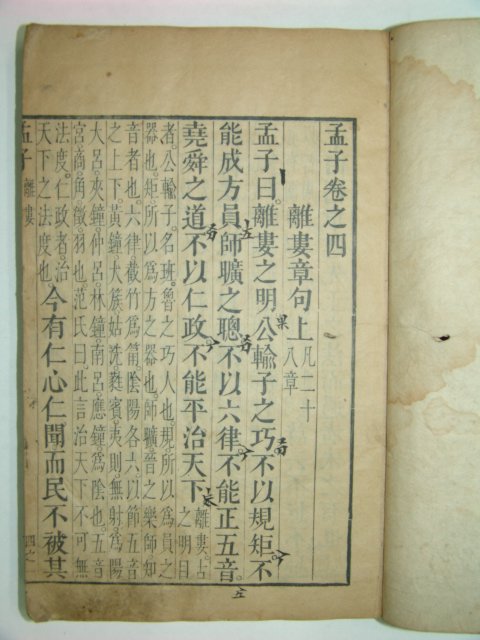 孟子卷之四
離婁章句上 凡二十
八章
孟子曰。離婁之明公輸子之巧不以規矩不
能成方員師曠之聰不以六律不能正五音。
堯舜之道不以仁政不能平治天下 離婁。古
之明目
者。公輸子。名班。魯之巧人也。規所以爲員之
器也。矩所以爲方之器也。師曠晉之樂師。知
音者也。六律。截竹爲筩。陰陽各六。以節五音
之上下。黃鐘大族姑洗蕤賓夷則無射爲陽
大呂夾鐘仲呂林鐘南呂應鐘爲陰也。五音
宮商角徵羽也。范氏曰。此言治天下不可無
法度。仁政者。治
天下之法度也
今有仁心仁聞而民不被其
孟子 離婁